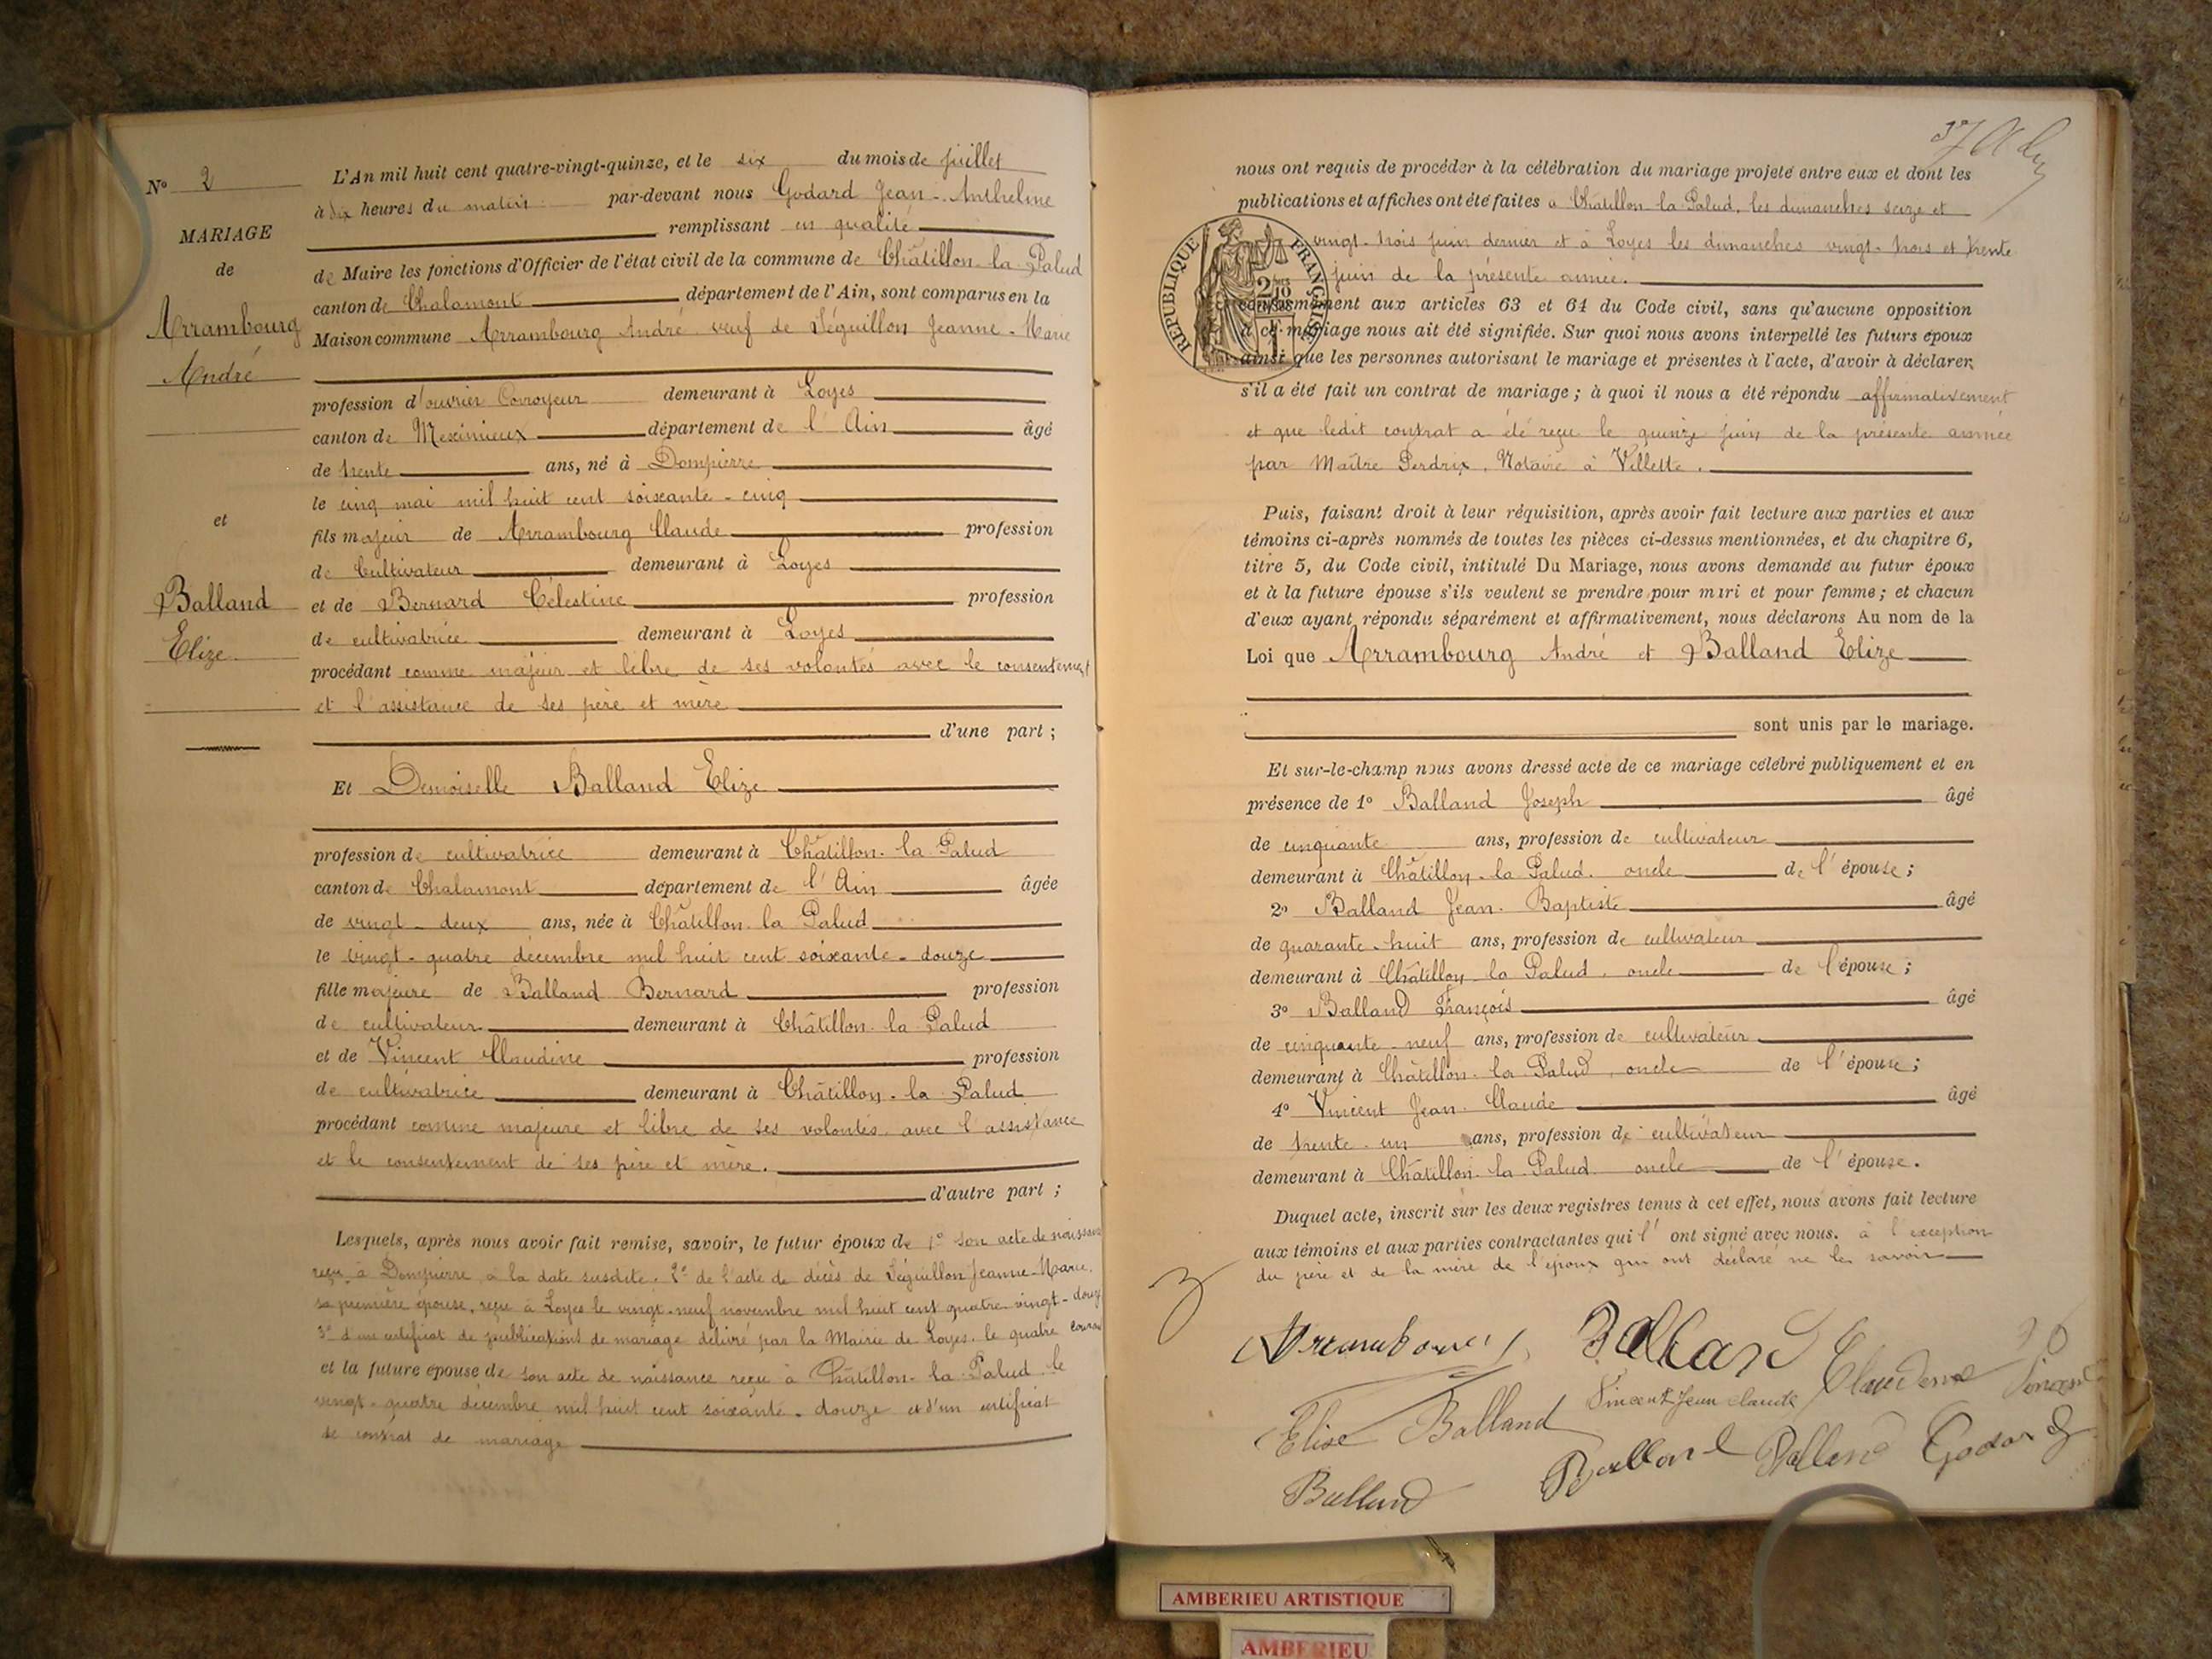 Nº 2
MARIAGE
de
Arrambourg
André
et
Balland
Elize
L'An mil huit cent quatre-vingt-quinze, et le six du mois de juillet
à dix heures du matin par-devant nous Godard Jean-Anthelme
remplissant en qualité
de Maire les fonctions d'Officier de l'état civil de la commune de Châtillon-la-Palud
canton de Chalamont département de l'Ain, sont comparus en la
Maison commune Arrambourg André veuf de Séguillon Jeanne-Marie
profession d'ouvrier Corroyeur demeurant à Loyes
canton de Meximieux département de l'Ain âgé
de trente ans, né à Dompierre
le cinq mai mil huit cent soixante-cinq
fils majeur de Arrambourg Claude profession
de Cultivateur demeurant à Loyes
et de Bernard Célestine profession
de cultivatrice demeurant à Loyes
procédant comme majeur et libre de ses volontés avec le consentement
et l'assistance de ses père et mère
d'une part ;
Et Demoiselle Balland Elize
profession de cultivatrice demeurant à Châtillon-la-Palud
canton de Chalamont département de l'Ain âgée
de vingt-deux ans, née à Châtillon-la-Palud
le vingt-quatre décembre mil huit cent soixante-douze
fille majeure de Balland Bernard profession
de cultivateur demeurant à Châtillon-la-Palud
et de Vincent Claudine profession
de cultivatrice demeurant à Châtillon-la-Palud
procédant comme majeure et libre de ses volontés avec l'assistance
et le consentement de ses père et mère.
d'autre part ;
Lesquels, après nous avoir fait remise, savoir, le futur époux de 1º son acte de naissance
reçu à Dompierre à la date susdite. 2º de l'acte de décès de Séguillon Jeanne-Marie,
sa première épouse, reçu à Loyes le vingt-neuf novembre mil huit cent quatre-vingt-douze
3º d'un certificat de publications de mariage délivré par la Mairie de Loyes, le quatre courant
et la future épouse de son acte de naissance reçu à Châtillon-la-Palud le
vingt-quatre décembre mil huit cent soixante-douze et d'un certificat
de contrat de mariage
37
nous ont requis de procéder à la célébration du mariage projeté entre eux et dont les
publications et affiches ont été faites à Châtillon-la-Palud, les dimanches seize et
vingt-trois juin dernier et à Loyes les dimanches vingt-trois et trente
juin de la présente année.
REPUBLIQUE FRANÇAISE
conformément aux articles 63 et 64 du Code civil, sans qu'aucune opposition
à ce mariage nous ait été signifiée. Sur quoi nous avons interpellé les futurs époux
ainsi que les personnes autorisant le mariage et présentes à l'acte, d'avoir à déclarer
s'il a été fait un contrat de mariage ; à quoi il nous a été répondu affirmativement
et que ledit contrat a été reçu le quinze juin de la présente année
par Maître Perdrix, Notaire à Villette.
Puis, faisant droit à leur réquisition, après avoir fait lecture aux parties et aux
témoins ci-après nommés de toutes les pièces ci-dessus mentionnées, et du chapitre 6,
titre 5, du Code civil, intitulé Du Mariage, nous avons demandé au futur époux
et à la future épouse s'ils veulent se prendre pour mari et pour femme ; et chacun
d'eux ayant répondu séparément et affirmativement, nous déclarons Au nom de la
Loi que Arrambourg André et Balland Elize
sont unis par le mariage.
Et sur-le-champ nous avons dressé acte de ce mariage célébré publiquement et en
présence de 1º Balland Joseph âgé
de cinquante ans, profession de cultivateur
demeurant à Châtillon-la-Palud. oncle de l'épouse ;
2º Balland Jean-Baptiste âgé
de quarante-huit ans, profession de cultivateur
demeurant à Châtillon-la-Palud, oncle de l'épouse ;
3º Balland François âgé
de cinquante-neuf ans, profession de cultivateur
demeurant à Châtillon-la-Palud, oncle de l'épouse ;
4º Vincent Jean-Claude âgé
de trente-un ans, profession de cultivateur
demeurant à Châtillon-la-Palud oncle de l'épouse.
Duquel acte, inscrit sur les deux registres tenus à cet effet, nous avons fait lecture
aux témoins et aux parties contractantes qui l'ont signé avec nous. à l'exception
du père et de la mère de l'époux qui ont déclaré ne le savoir
Arrambourg Balland
Vincent Jean Claude Claudine Vincent
Elise Balland
Balland Balland Balland Godard
AMBERIEU ARTISTIQUE
AMBERIEU